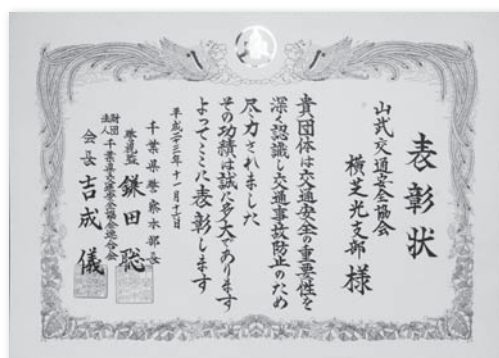 表彰状
山武交通安全協会
横芝光支部 様
貴団体は交通安全の重要性を
深く認識し交通事故防止のため
尽力されました
その功績は誠に多大であります
よってここに表彰します
平成二十三年十一月十六日
千葉県警察本部長
警視監 鎌田聡
財団法人 千葉県交通安全協会連合会
会長 吉成儀